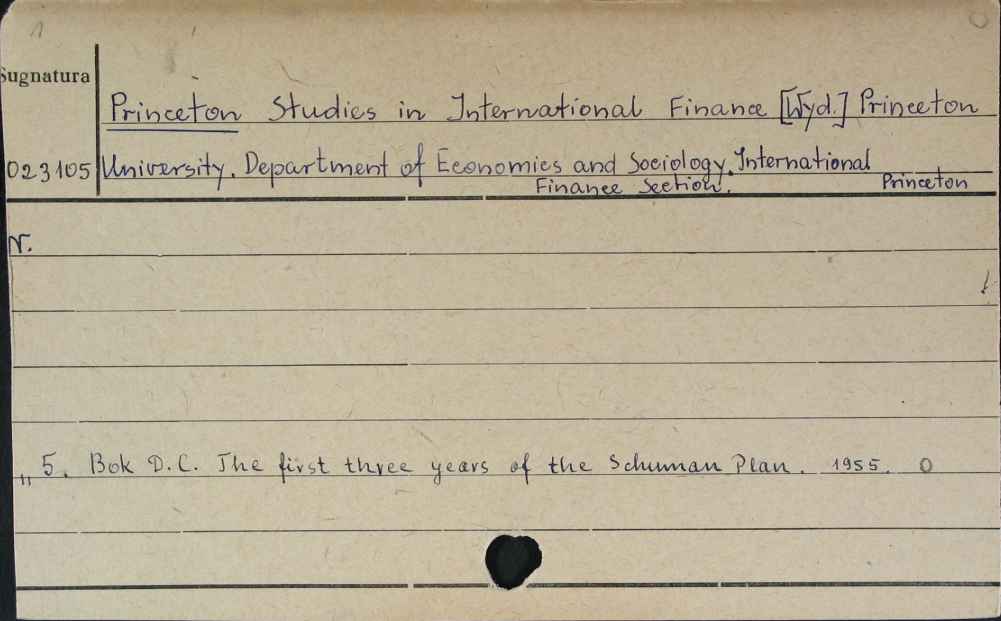 1
Sugnatura
Princeton Studies in International Finance [Wyd.] Princeton
023105 University. Department of Economics and Sociology. International
Finance Section. Princeton
N.
„ 5. Bok D.C. The first three years of the Schuman Plan. 1955. 0